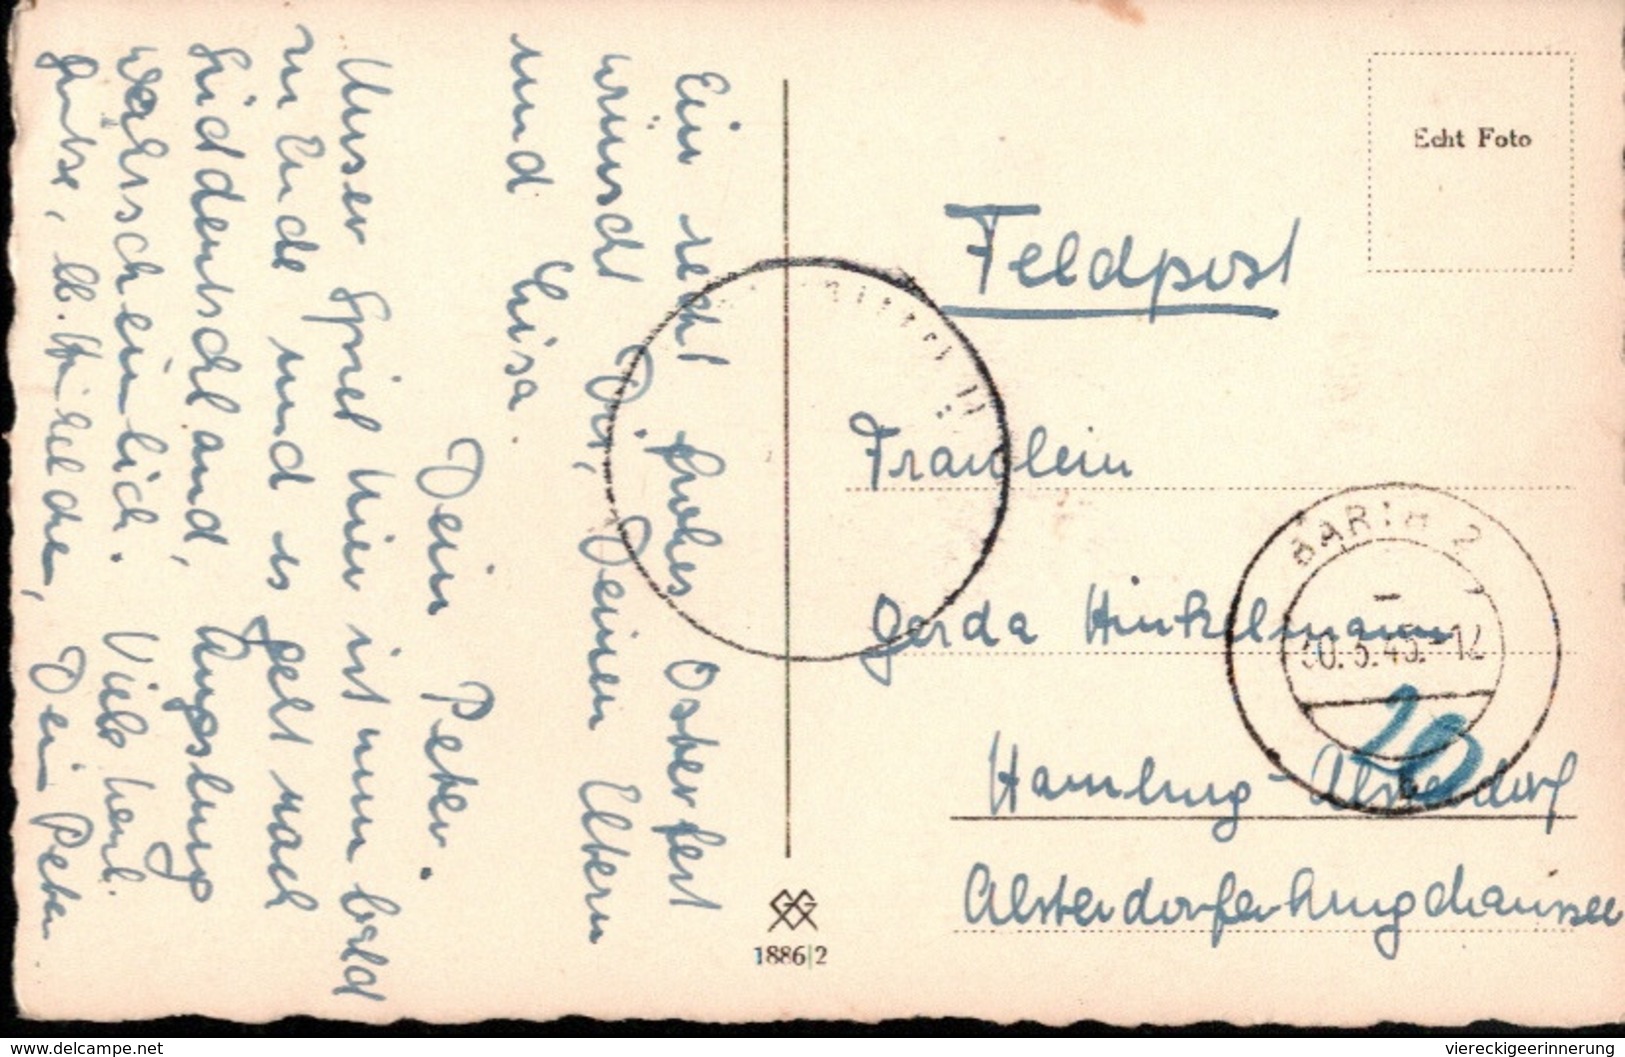 Ein recht frohes Osterfest
wünscht Dir, Deinen Eltern
und Lisa.
Dein Peter.
Unser Spiel hier ist nun bald
zu Ende und es geht nach
Süddeutschland, Augsburg
wahrscheinlich. Viele herzl.
Grüße, lb. Hinkelchen, Dein Peter
Echt Foto
Feldpost
Fräulein
Gerda Hinkelmann
Hamburg-Alsterdorf
Alsterdorfer
BARTH 2
30.3.45.-12
10
1886/2
www.delcampe.net
viereckigeerinnerung